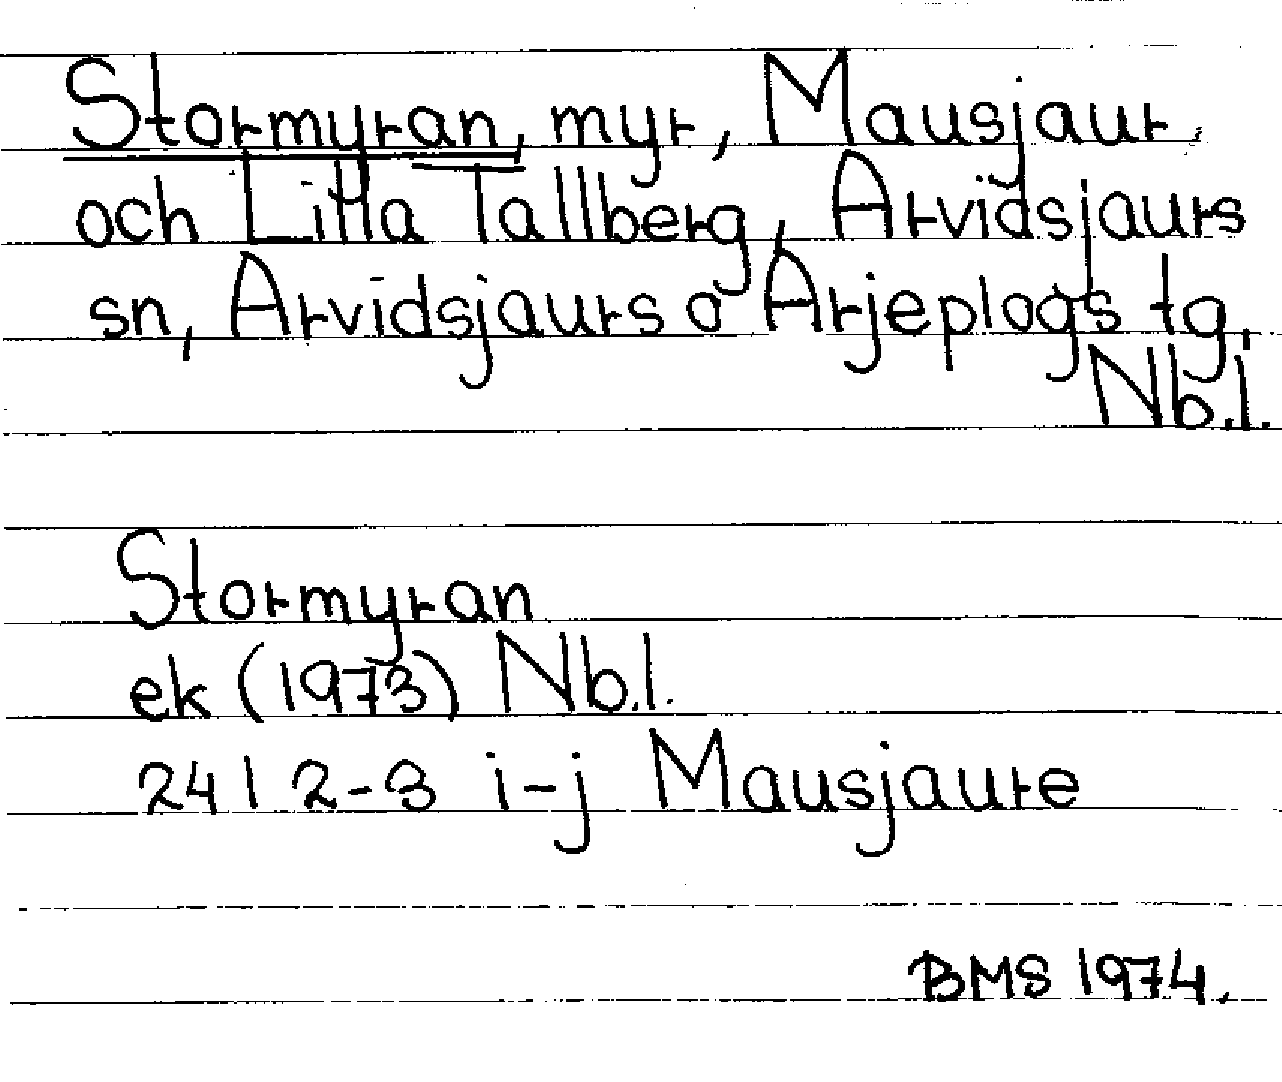 Stormyran, myr, Mausjaur
och Lilla Tallberg, Arvidsjaurs
sn, Arvidsjaurs o Arjeplogs tg,
Nb.l.
Stormyran
ek (1973) Nb.l.
24 I 2-3 i-j Mausjaure
BMS 1974.